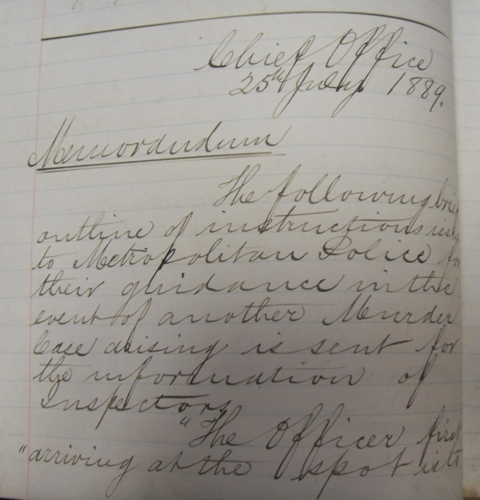 Chief Office
25th July 1889.
Memordudum
The following brief
outline of instructions
to Metropolitan Police for
their guidance in the
event of another Murder
Case arising is sent for
the information of
Inspectors
"The Officer first
"arriving at the spot is to